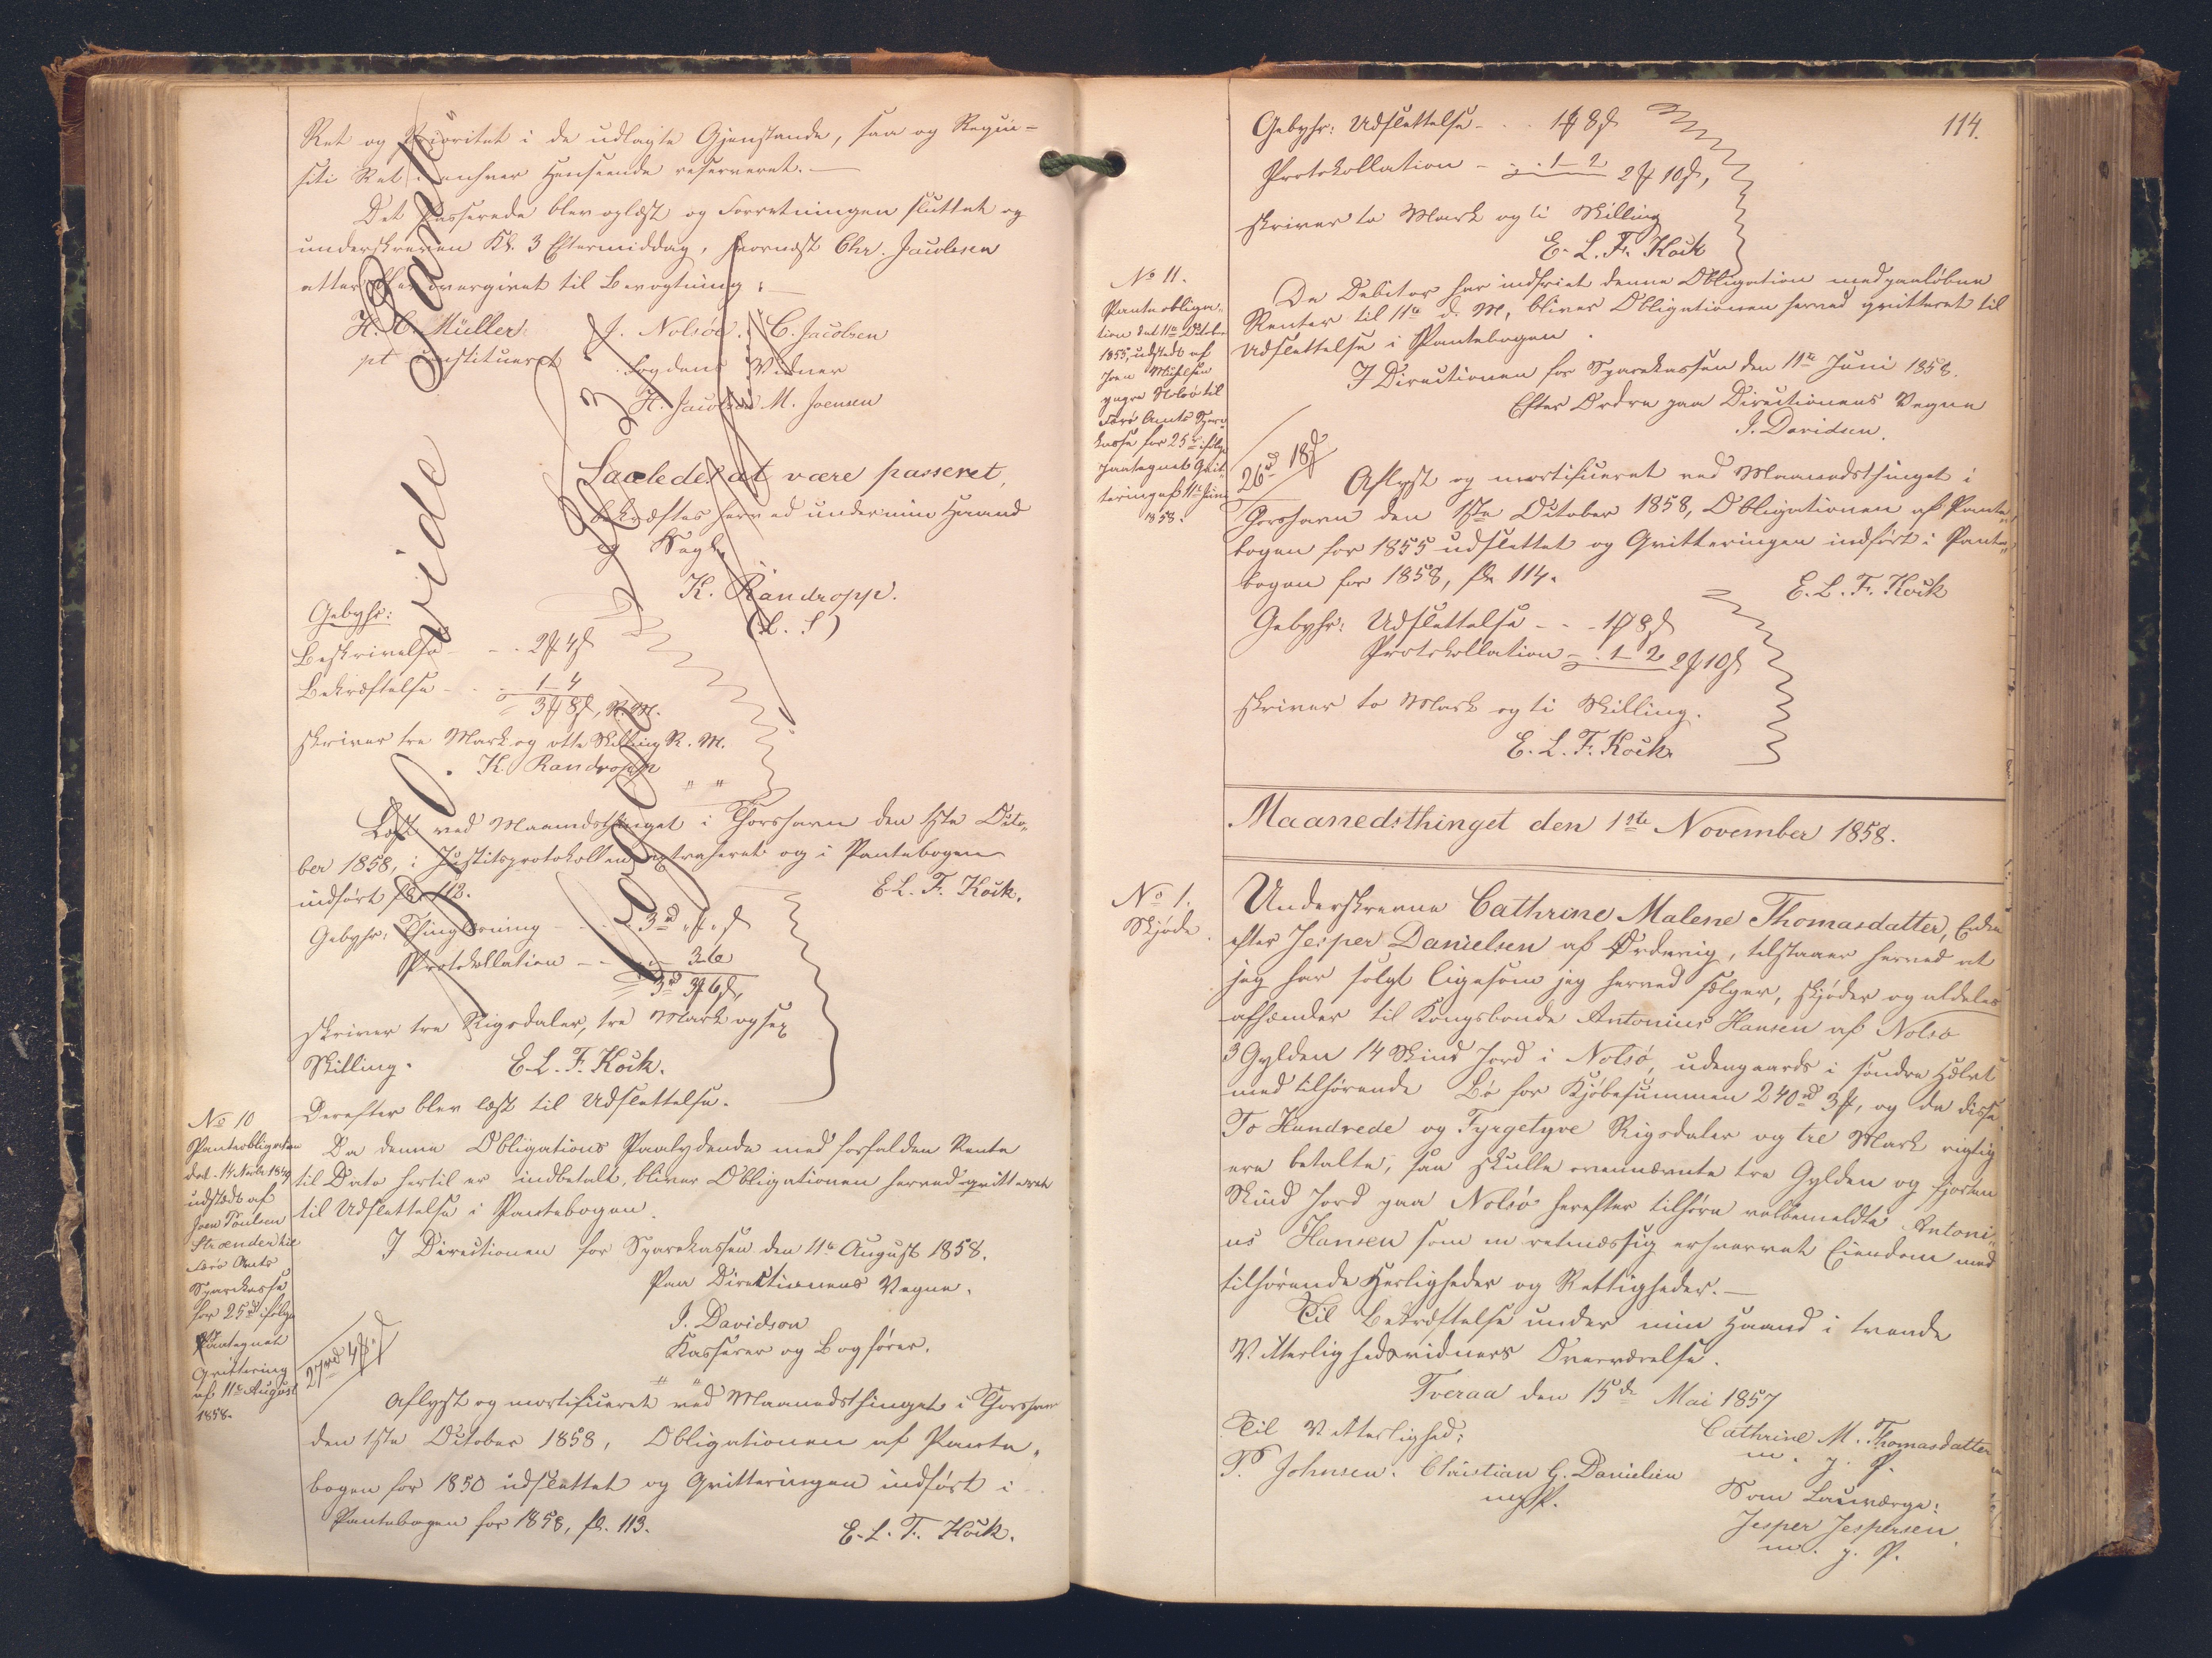 Ret og Prioritet i de udlagte Gjenstande, saa og Reqvi-
siti Ret i enhver Henseende reserveret.—
Det Passerede blev oplæst og Forretningen sluttet og
underskreven Kl. 3 Eftermiddag, hvornæst Chr. Jacobsen
atter blev overgivet til Bevogtning.
H. C. Müller. J. Nolsöe. C. Jacobsen
pt constitueret Fogdens Vidner
H. Jacobsen M. Joensen
Saaledes at være passeret,
bekræftes herved under min Haand
og Segl.
K. Randropp.
(L. S)
Gebyhr:
Beskrivelse - - . 2 ꝟ 4 ß
Bekræftelse - - . 1 - 4
3 ꝟ 8 ß, R. M.
skriver tre Mark og otte Skilling R. M.
K. Randropp
" "
Læst ved Maanedsthinget i Thorshavn den 1ste Octo-
ber 1858, i Justitsprotokollen extraheret og i Pantebogen
indført fol. 112.
E. L. F. Kock.
Gebyhr: Thinglæsning - - . 3 rd " ꝟ " ß
Protokollation - - - 3 - 6
3 rd 3 ꝟ 6 ß,
skriver tre Rigsdaler, tre Mark og sex
Skilling. E. L. F. Kock.
Derefter blev læst til Udslettelse.
No 10
Panteobligation
dat. 14 Novbr 1849
udstedt af
Joen Poulsen
Strænder til
Færø Amts
Sparekasse
for 25 rd ifølge
paategnet
Qvittering
af 11te August
1858.
Da denne Obligations Paalydende med forfalden Rente
til Dato hertil er indbetalt, bliver Obligationen herved qvitteret
til Udslettelse i Pantebogen.
I Directionen for Sparekassen den 11te August 1858.
Paa Directionens Vegne.
J. Davidson
Kasserer og Bogfører.
27 rd 4 ꝟ " ß
" "
Aflyst og mortificeret ved Maanedsthinget i Thorshavn
den 1ste October 1858, Obligationen af Pante-
bogen for 1850 udslettet og Qvitteringen indført i
Pantebogen for 1858, fol. 113.
E. L. F. Kock.
vide
114.
Gebyhr: Udslettelse - . . 1 ꝟ 8 ß
Protokollation - - . 1 - 2 2 ꝟ 10 ß,
skriver to Mark og ti Skilling
E. L. F. Kock
No 11.
Panteobliga-
tion dat 11te Octobr
1855, udstedt af
Joen
yngre Nolsö til
Færö Amts Spare-
kasse for 25 rd ifølge
paategnet Qvit-
tering af 11te Juni
1858.
Da Debitor har indfriet denne Obligation med paaløbne
Renter til 11te d. M, bliver Obligationen herved qvitteret til
Udslettelse i Pantebogen.
I Directionen for Sparekassen den 11te Juni 1858.
Efter Ordre paa Directionens Vegne
J. Davidsen.
26 rd 18 ß
Aflyst og mortificeret ved Maanedsthinget i
Thorshavn den 1ste October 1858, Obligationen af Pante-
bogen for 1855 udslettet og Qvitteringen indført i Pante-
bogen for 1858, fol. 114.
E. L. F. Kock
Gebyhr: Udslettelse - - . 1 ꝟ 8 ß
Protokollation - . 1 - 2 2 ꝟ 10 ß
skriver to Mark og ti Skilling.
E. L. F. Kock.
Maanedsthinget den 1ste November 1858.
No 1.
Skjøde.
Underskrevne Cathrine Malene Thomasdatter, Enke
efter Jesper Danielsen af Ørdevig, tilstaaer herved at
jeg har solgt ligesom jeg herved sælger, skjøder og aldeles
afhænder til Kongsbonde Antonius Hansen af Nolsö
3 Gylden 14 Skind Jord i Nolsö, udengaards i søndre Hælvt
med tilhørende Bö for Kjøbesummen 240 rd 3 ꝟ, og da disse
To Hundrede og Fyrgetyve Rigsdaler og tre Mark rigtig
ere betalte, saa skulle ovennævnte tre Gylden og fjorten
Skind Jord paa Nolsö herefter tilhøre velbemeldte Antoni-
us Hansen som en retmæssig erhvervet Eiendom med
tilhørende Herligheder og Rettigheder.—
Til Bekræftelse under min Haand i tvende
Vitterlighedsvidners Overværelse.
Tveraa den 15de Mai 1857
Til Vitterlighed:
Cathrine M. Thomasdatter
m. f. P.
P. Johnsen. Christian G. Danielsen
m. f. P.
Som Laugværge:
Jesper Jespersen.
m. f. P.